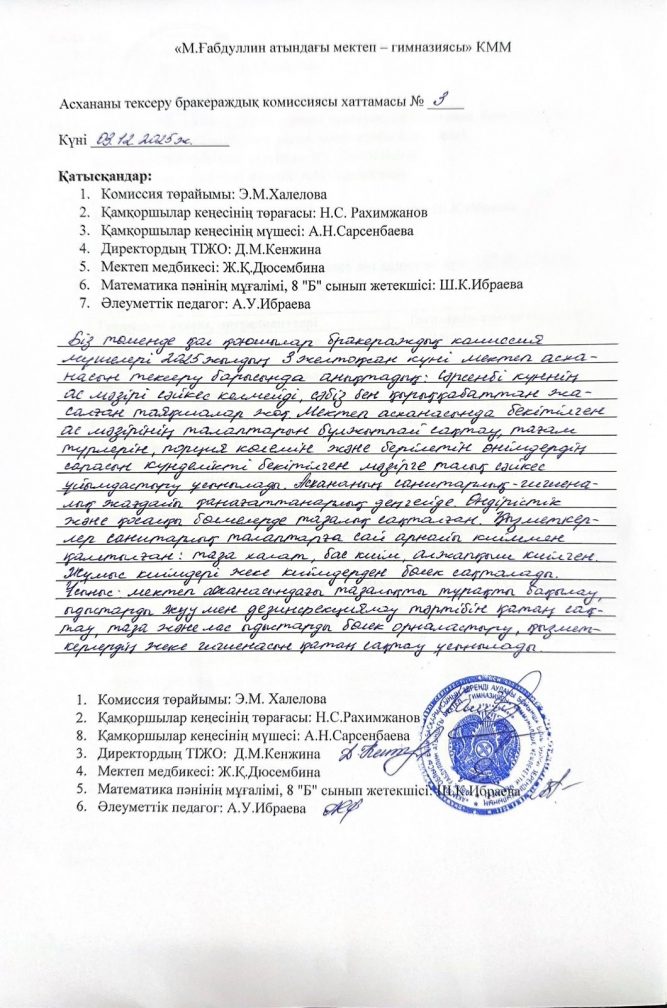 «М.Ғабдуллин атындағы мектеп – гимназиясы» КММ
Асхананы тексеру бракераждық комиссиясы хаттамасы № 3
Күні 03.12.2025ж.
Қатысқандар:
1. Комиссия төрайымы: Э.М.Халелова
2. Қамқоршылар кеңесінің төрағасы: Н.С. Рахимжанов
3. Қамқоршылар кеңесінің мүшесі: А.Н.Сарсенбаева
4. Директордың ТІЖО: Д.М.Кенжина
5. Мектеп медбикесі: Ж.Қ.Дюсембина
6. Математика пәнінің мұғалімі, 8 "Б" сынып жетекшісі: Ш.К.Ибраева
7. Әлеуметтік педагог: А.У.Ибраева
Біз төменде қол қоюшылар бракераждық комиссия
мүшелері 2025 жылдың 3 желтоқсан күні мектеп асха-
насын тексеру барысында анықтадық: Сәрсенбі күннің
ас мәзірі сәйкес келмейді, сәбіз бен қырыққабаттан жа-
салған таяқшалар жоқ. Мектеп асханасында бекітілген
ас мәзірінің талаптарын бұлжытпай сақтау, тағам
түрлерін, порция көлемін және берілетін өнімдердің
сапасын күнделікті бекітілген мәзірге толық сәйкес
ұйымдастыру ұсынылады. Асхананың санитарлық-гигиена-
лық жағдайы қанағаттанарлық деңгейде. Өндірістік
және қосалқы бөлмелерде тазалық сақталған. Қызметкер-
лер санитарлық талаптарға сай арнайы киіммен
қамтылған: таза халат, бас киім, алжапқыш киілген.
Жұмыс киімдері жеке киімдерден бөлек сақталады.
Ұсыныс: мектеп асханасындағы тазалықты тұрақты бақылау,
ыдыстарды жуу мен дезинфекциялау тәртібін қатаң сақ-
тау, таза және лас ыдыстарды бөлек орналастыру, қызмет-
керлердің жеке гигиенасын қатаң сақтау ұсынылады.
1. Комиссия төрайымы: Э.М. Халелова
2. Қамқоршылар кеңесінің төрағасы: Н.С.Рахимжанов
8. Қамқоршылар кеңесінің мүшесі: А.Н.Сарсенбаева
3. Директордың ТІЖО: Д.М.Кенжина
4. Мектеп медбикесі: Ж.Қ.Дюсембина
5. Математика пәнінің мұғалімі, 8 "Б" сынып жетекшісі: Ш.К.Ибраева
6. Әлеуметтік педагог: А.У.Ибраева